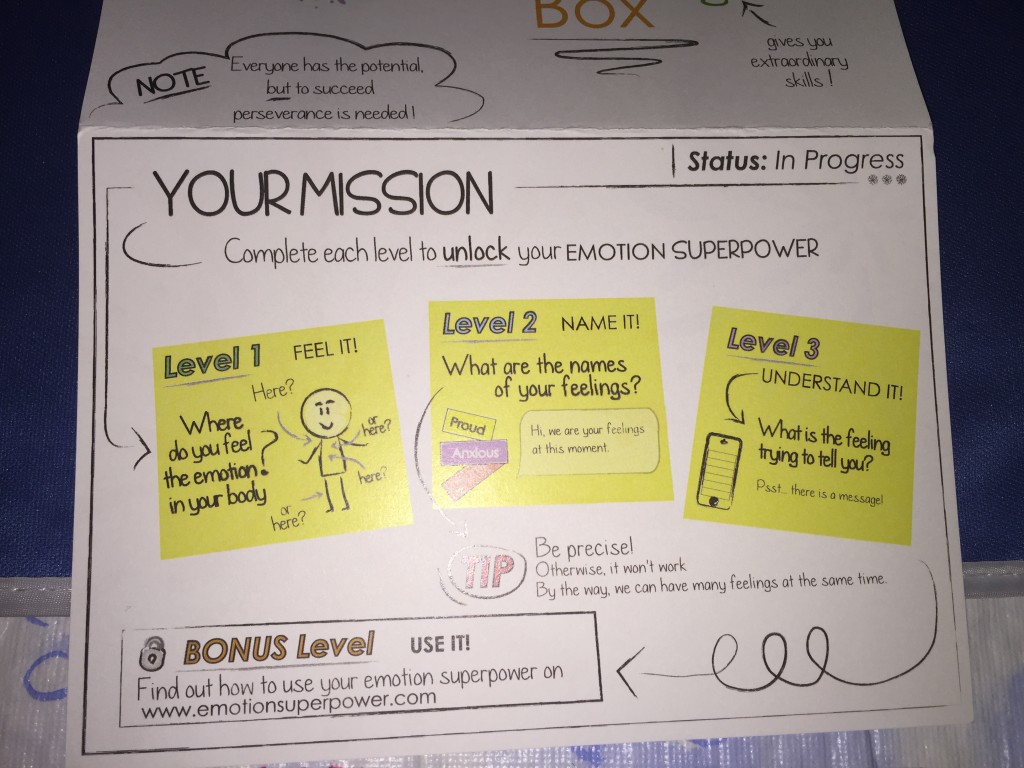 BOX
gives you
extraordinary
skills!
NOTE
Everyone has the potential,
but to succeed
perseverance is needed!
Status: In Progress
YOUR MISSION
Complete each level to unlock your EMOTION SUPERPOWER
Level 1 FEEL IT!
Here?
Where
do you feel
the emotion
in your body
?
or
here?
here?
or
here?
Level 2 NAME IT!
What are the names
of your feelings?
Proud
Anxious
Hi, we are your feelings
at this moment.
Level 3
UNDERSTAND IT!
What is the feeling
trying to tell you?
Psst... there is a message!
TIP
Be precise!
Otherwise, it won't work
By the way, we can have many feelings at the same time.
BONUS Level USE IT!
Find out how to use your emotion superpower on
www.emotionsuperpower.com